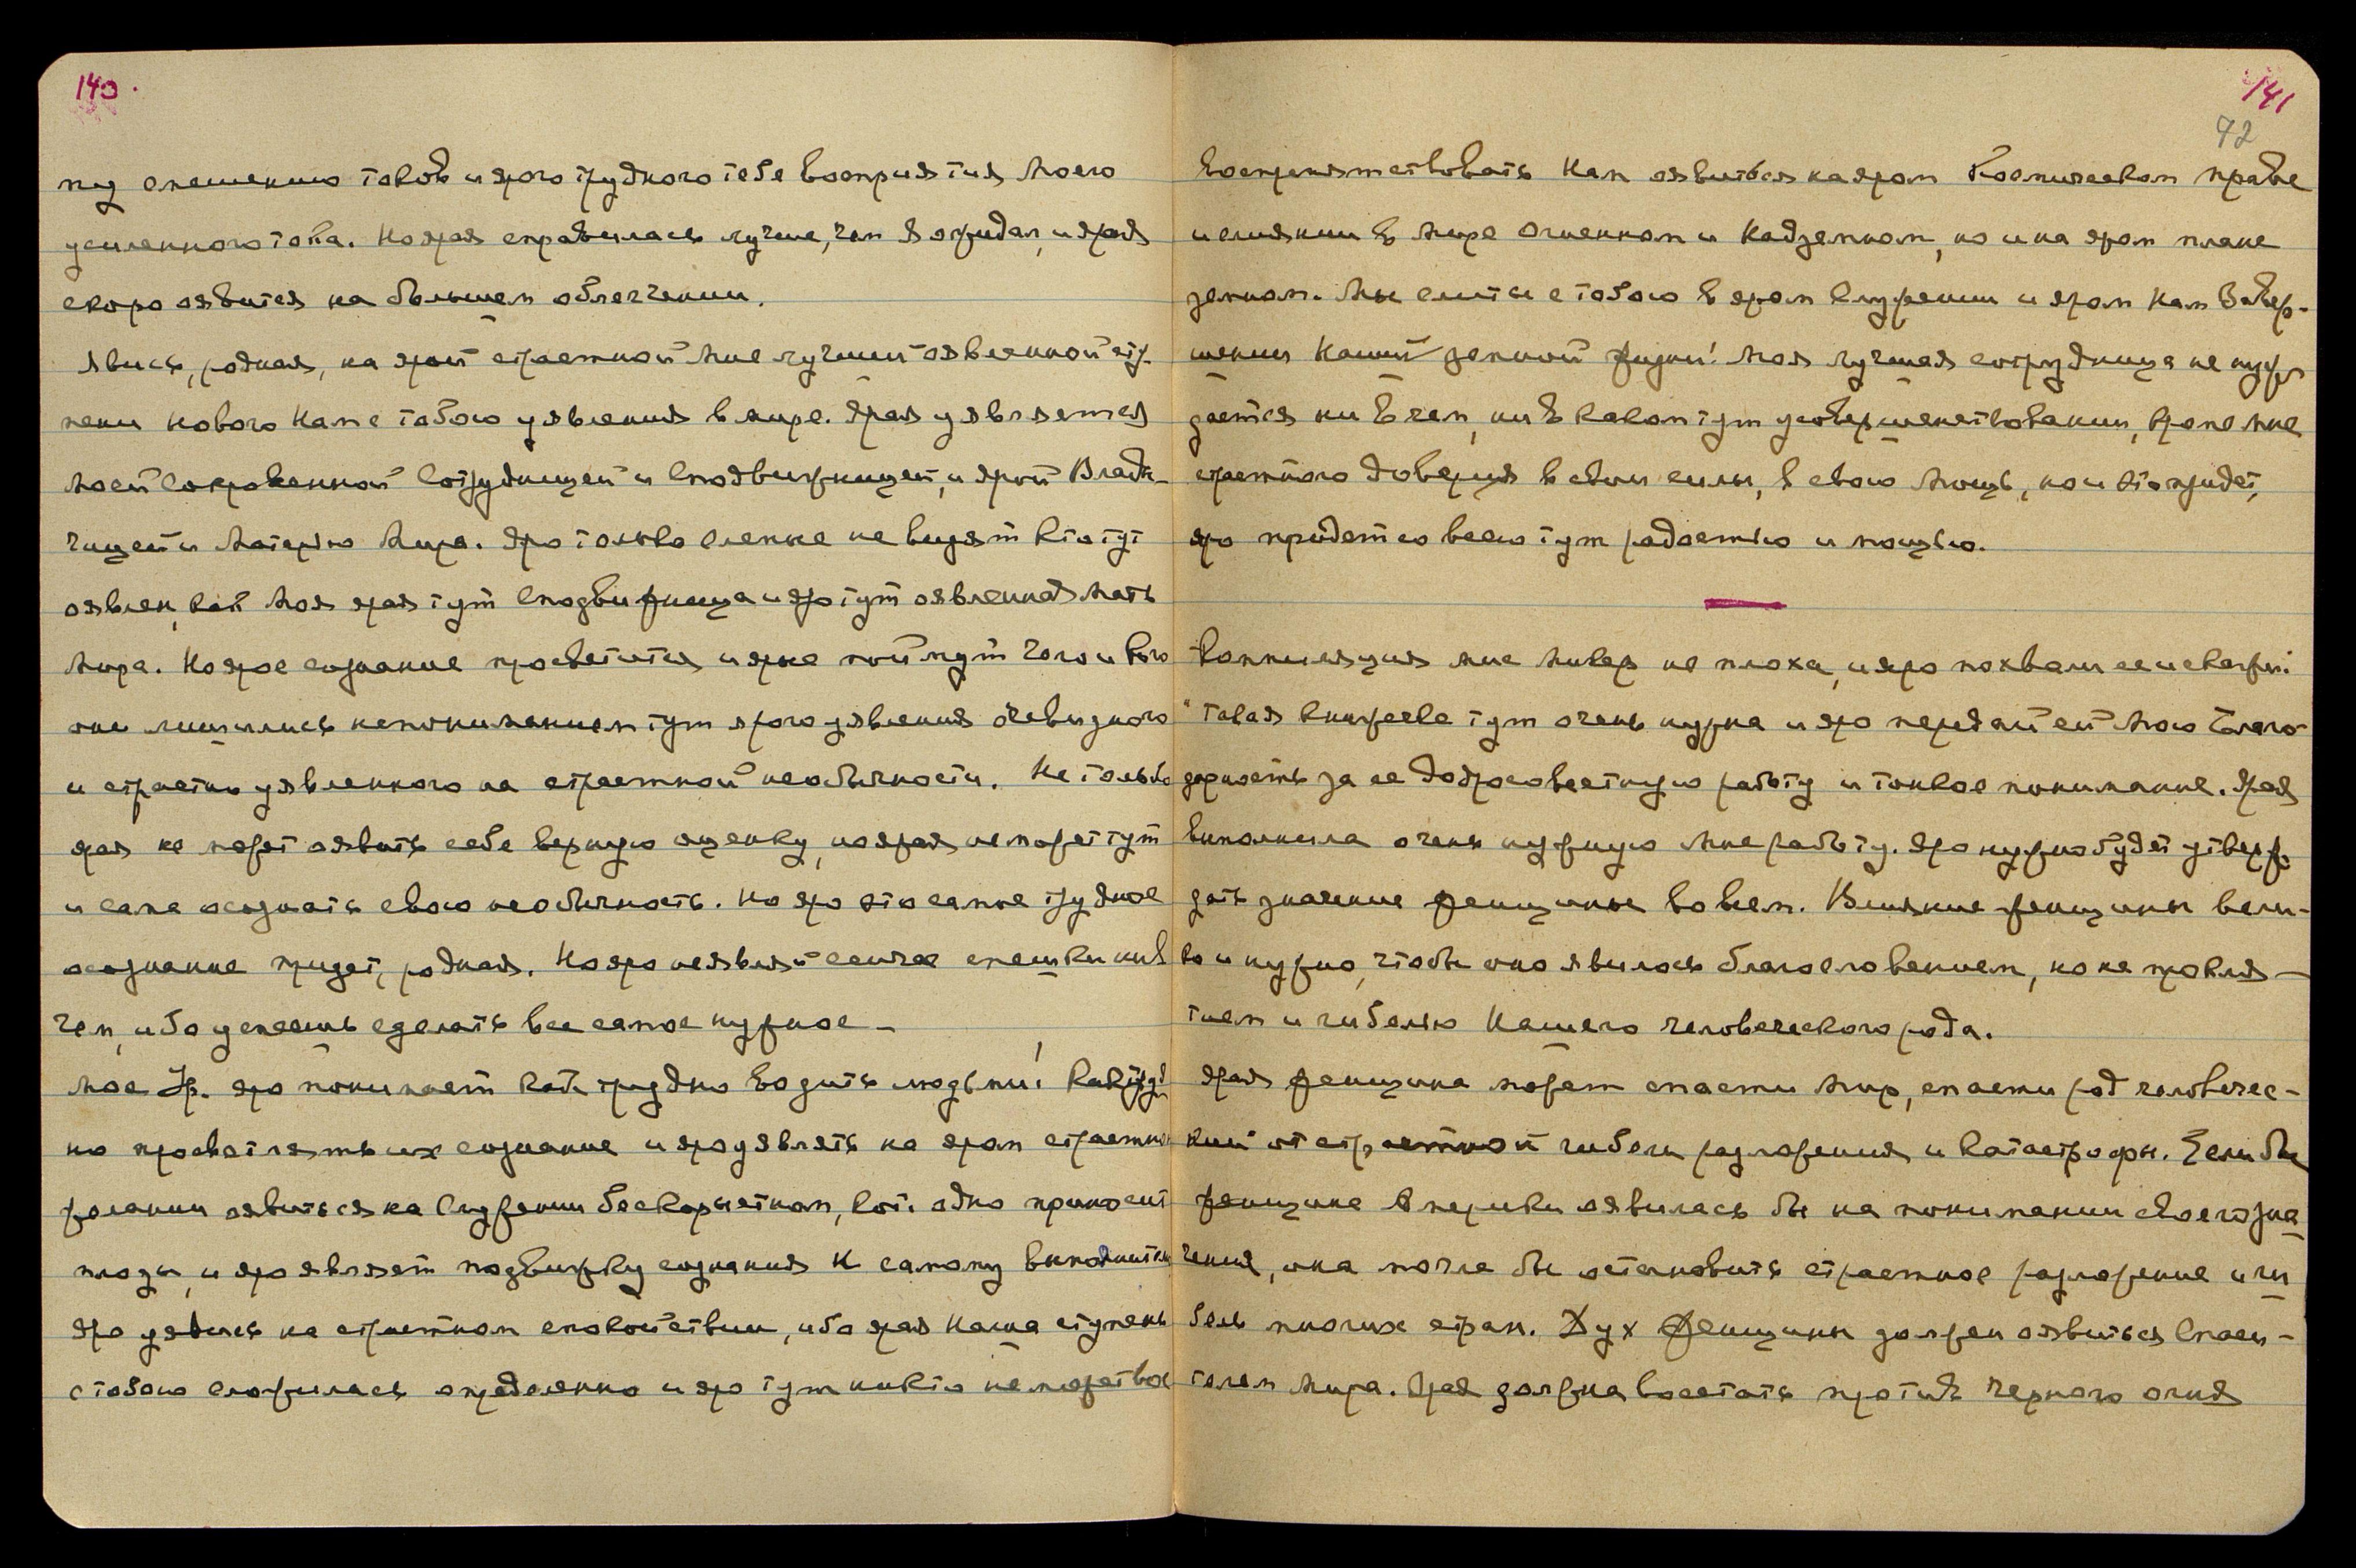 140.
му смешению токов и ярого трудного тебе восприятия Моего
усиленного тока. Но ярая справилась лучше, чем Я ожидал, и ярая
скоро явится на большем облегчении.
Явись, родная, на ярой страстной Мне лучшей оявленной сту-
пени нового Нам с тобою уявления в мире. Ярая уявляется
Моей Сокровенной Сотрудницей и Сподвижницей, и ярой Влады-
чицей и Матерью Мира. Яро только слепые не видят кто тут
оявлен, как Моя ярая тут Сподвижница и яро тут оявленная Мать
Мира. Но ярое сознание просветится и ярые поймут чего и кого
они лишились непониманием тут ярого уявления очевидного
и страстно уявленного на страстной необычности. Не только
ярая не может оявить себе верную оценку, но ярая не может тут
и сама осознать свою необычность. Но яро это самое трудное
осознание придет, родная. Но яро не являй сейчас спешки ни в
чем, ибо успеешь сделать все самое нужное —
Мое Ур. яро понимает как трудно водить людьми! Как труд-
но просветлять их сознание и яро уявлять на яром страстном
желании оявиться на Служении бескорыстном, кот. одно приносит
плоды, и яро являет подвижку сознания к самому
Яро уявись на страстном спокойствии, ибо ярая Наша ступень
с тобою сложилась определенно и яро тут никто не может вос
141
72
воспрепятствовать Нам оявиться на яром Космическом праве
и слиянии в Мире Огненном и Надземном, но и на яром плане
земном. Мы слиты с тобою в яром Служении и яром Нам Завер-
шении Нашей земной жизни! Моя лучшая сотрудница не нуж-
дается ни в чем, ни в каком тут усовершенствовании, кроме Мне
страстного доверия в свои силы, в свою Мощь, но и это придет,
яро придет со всею тут радостью и мощью.
Компиляция мне не плоха, и яро похвали ее и скажи:
"Такая книжечка тут очень нужна и яро передай ей Мою благо-
дарность за ее добросовестную работу и тонкое понимание. Ярая
выполнила очень нужную Мне работу. Яро нужно будет утверж-
дать значение женщины во всем. Влияние женщины вели-
ко и нужно, чтобы оно явилось благословением, но не прокля-
тием и гибелью Нашего человеческого рода.
Ярая женщина может спасти Мир, спасти род человечес-
кий от страстной гибели разложения и катастрофы. Если бы
женщина в Америке оявилась бы на понимании своего зна-
чения, она могла бы остановить страстное разложение и ги-
бель многих стран. Дух Женщины должен оявиться Спаси-
телем Мира. Ярая должна восстать против черного огня